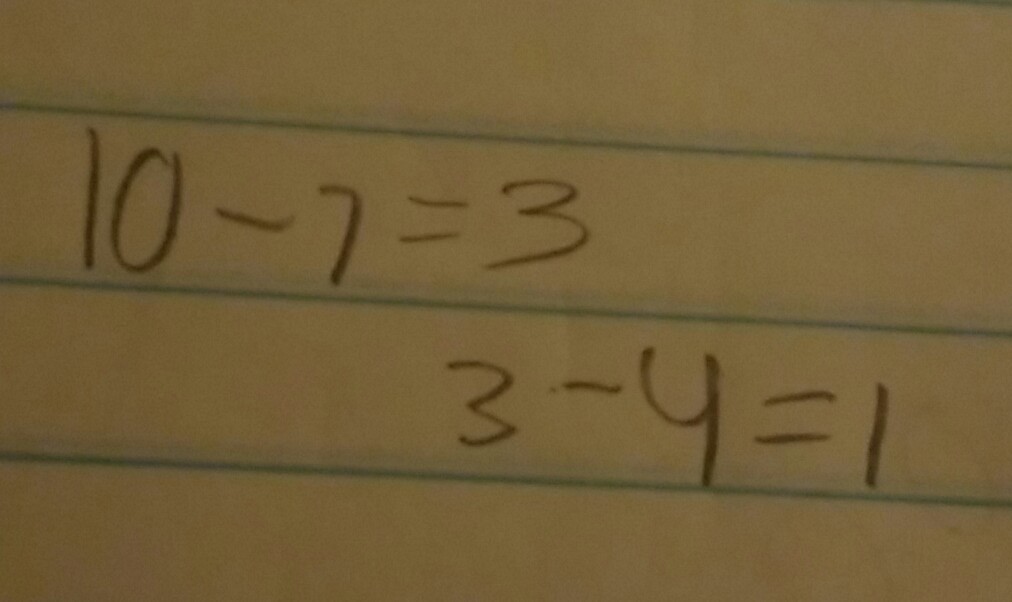 10 - 7 = 3
3 - 4 = 1